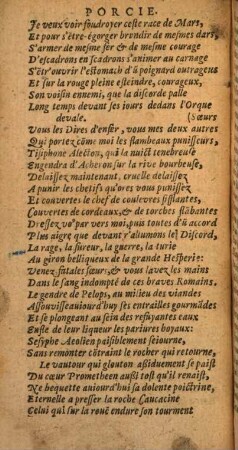 PORCIE.
Je veux voir foudroyer ceste race de Mars,
Et pour s'estre-égorger brendir de mesmes dars,
S'armer de mesme fer & de mesme courage
D'escadrons en scadrons s'animer au carnage
S'être ouvrir l'estomach d'ũ poignard outrageus
Et sur la rouge pleine esteindre, courageux,
Son voisin ennemi, que la discorde palle
Long temps devant ses iours dedans l'Orque
devale. (Sœurs
Vous les Dires d'enfer, vous mes deux autres
Qui portez cõme moi les flambeaux punisseurs,
Tisiphone Alecton, qui la nuict tenebreuse
Engendra d'Acheron sur la rive bourbeuse,
Delaissez maintenant, cruelle delaissez
A punir les chetifs qu'ores vous punissez
Et couvertes le chef de couleuvres sifflantes,
Couvertes de cordeaux, & de torches flãbantes
Dressez vo° par vers moi, puis toutes d'ũ accord
Plus aigre que devant r'allumons le Discord,
La rage, la fureur, la guerre, la turie
Au giron belliqueux de la grande Hesperie:
Venez, fatales sœurs, & vous lavez les mains
Dans le sang indompté de ces braves Romains.
Le gendre de Pelops, au milieu des viandes
Assouvisse auiourd'huy ses entrailles gourmãdes
Et se plongeant au sein des refuyantes eaux
Eusle de leur liqueur les pariures boyaux:
Sesyphe Aeolien paisiblement seiourne,
Sans remonter cõtraint le rocher qui retourne,
Le vautour qui glouton assiduement se paist
Du cœur Prometheen aussi tost qu'il renaist,
Ne bequette auiourd'hui sa dolente poictrine,
Eternelle a presser la roche Caucasine
Celui qui sur la rouë endure son tourment